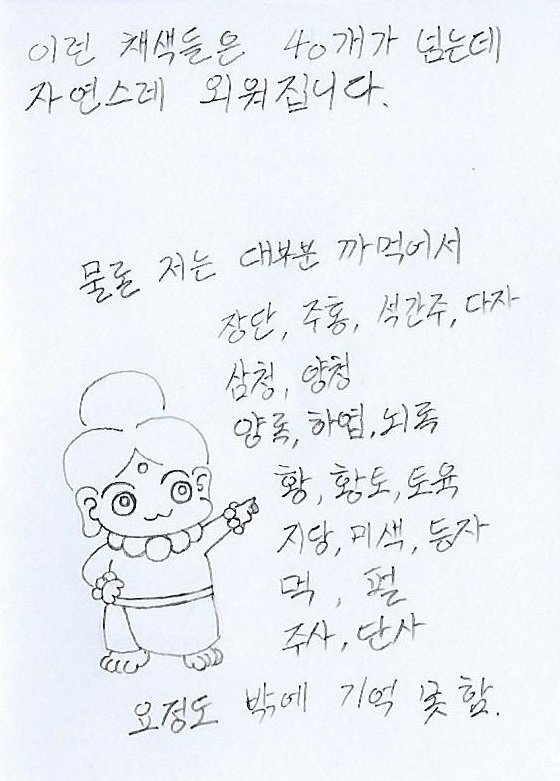 이런 채색들은 40개가 넘는데
자연스레 외워집니다.
물론 저는 대부분 까먹어서
장단, 주홍, 석간주, 다자
삼청, 양청
양록, 하엽, 뇌록
황, 황토, 토육
지당, 미색, 등자
먹, 펄
주사, 단사
요정도 밖에 기억 못함.